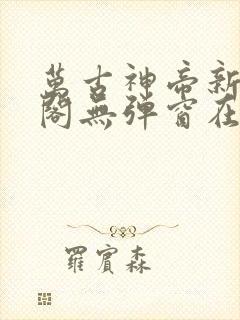 萬古神帝新
閣無彈窗在
羅賓森